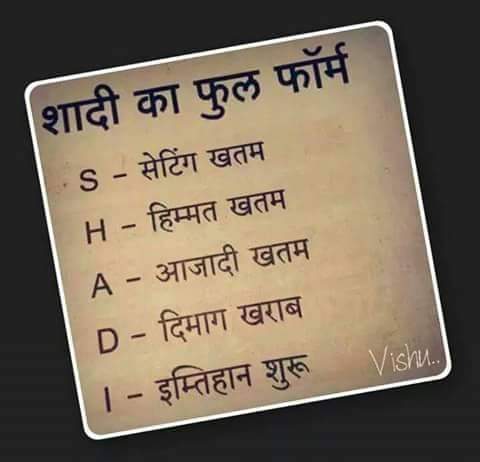 शादी का फुल फॉर्म
S - सेटिंग खतम
H - हिम्मत खतम
A - आजादी खतम
D - दिमाग खराब
I - इम्तिहान शुरू
Vishu..